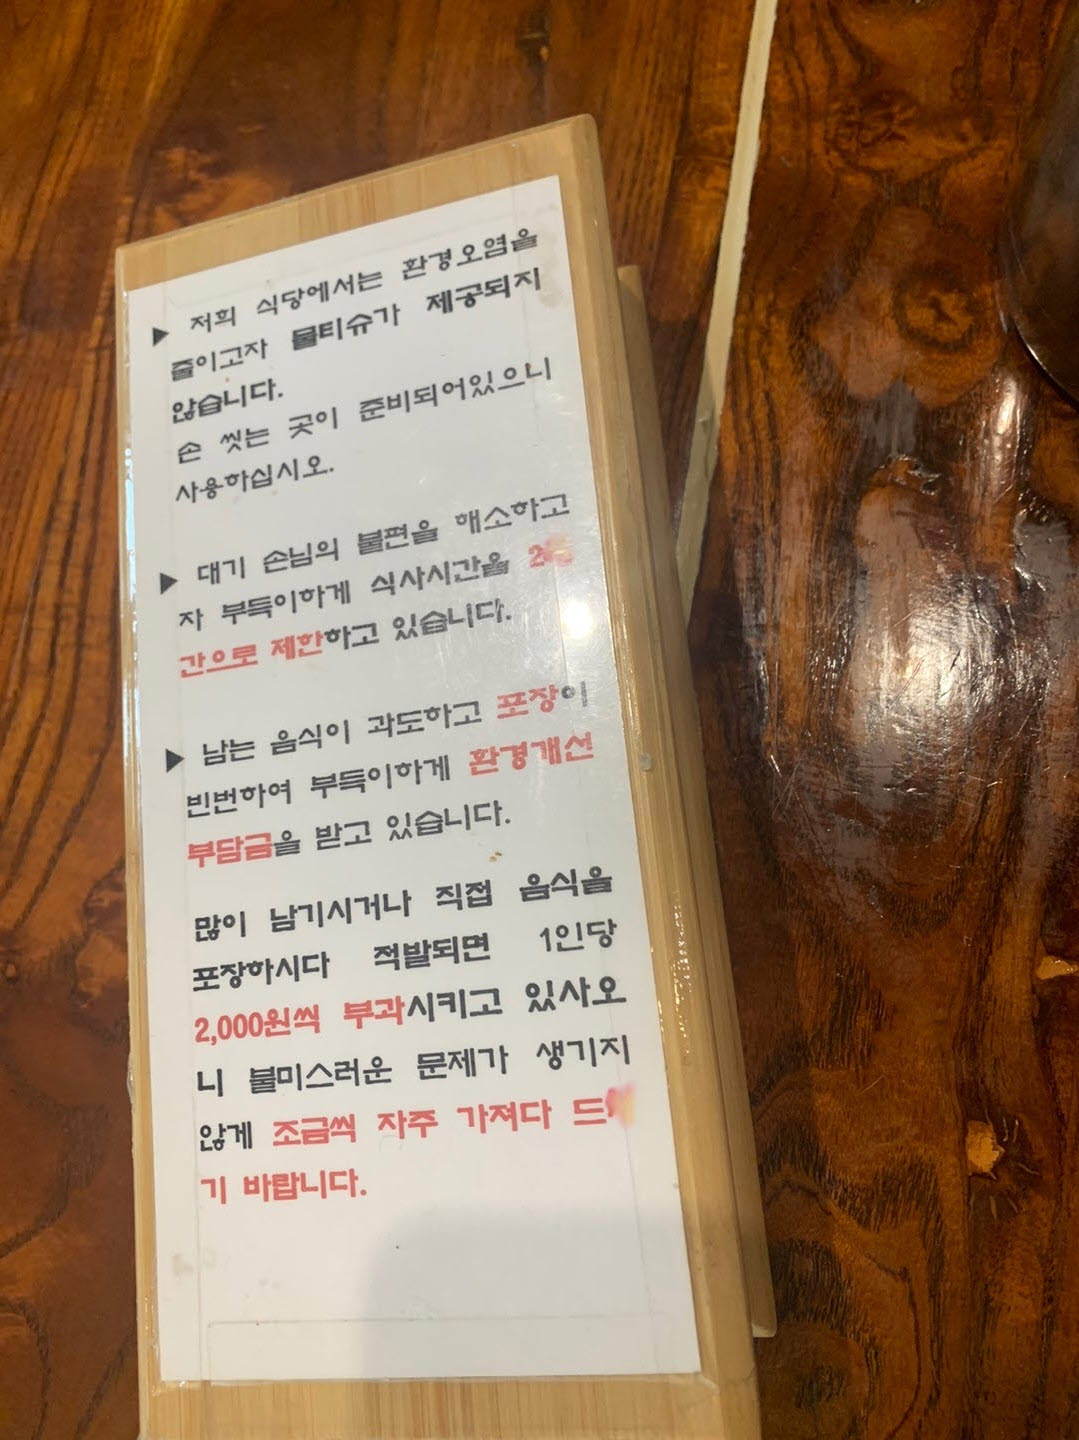 ▶ 저희 식당에서는 환경오염을
줄이고자 물티슈가 제공되지
않습니다.
손 씻는 곳이 준비되어있으니
사용하십시오.
▶ 대기 손님의 불편을 해소하고
자 부득이하게 식사시간을
간으로 제한하고 있습니다.
▶ 남는 음식이 과도하고 포장이
빈번하여 부득이하게 환경개선
부담금을 받고 있습니다.
많이 남기시거나 직접 음식을
포장하시다 적발되면 1인당
2,000원씩 부과시키고 있사오
니 불미스러운 문제가 생기지
않게 조금씩 자주 가져다 드
기 바랍니다.